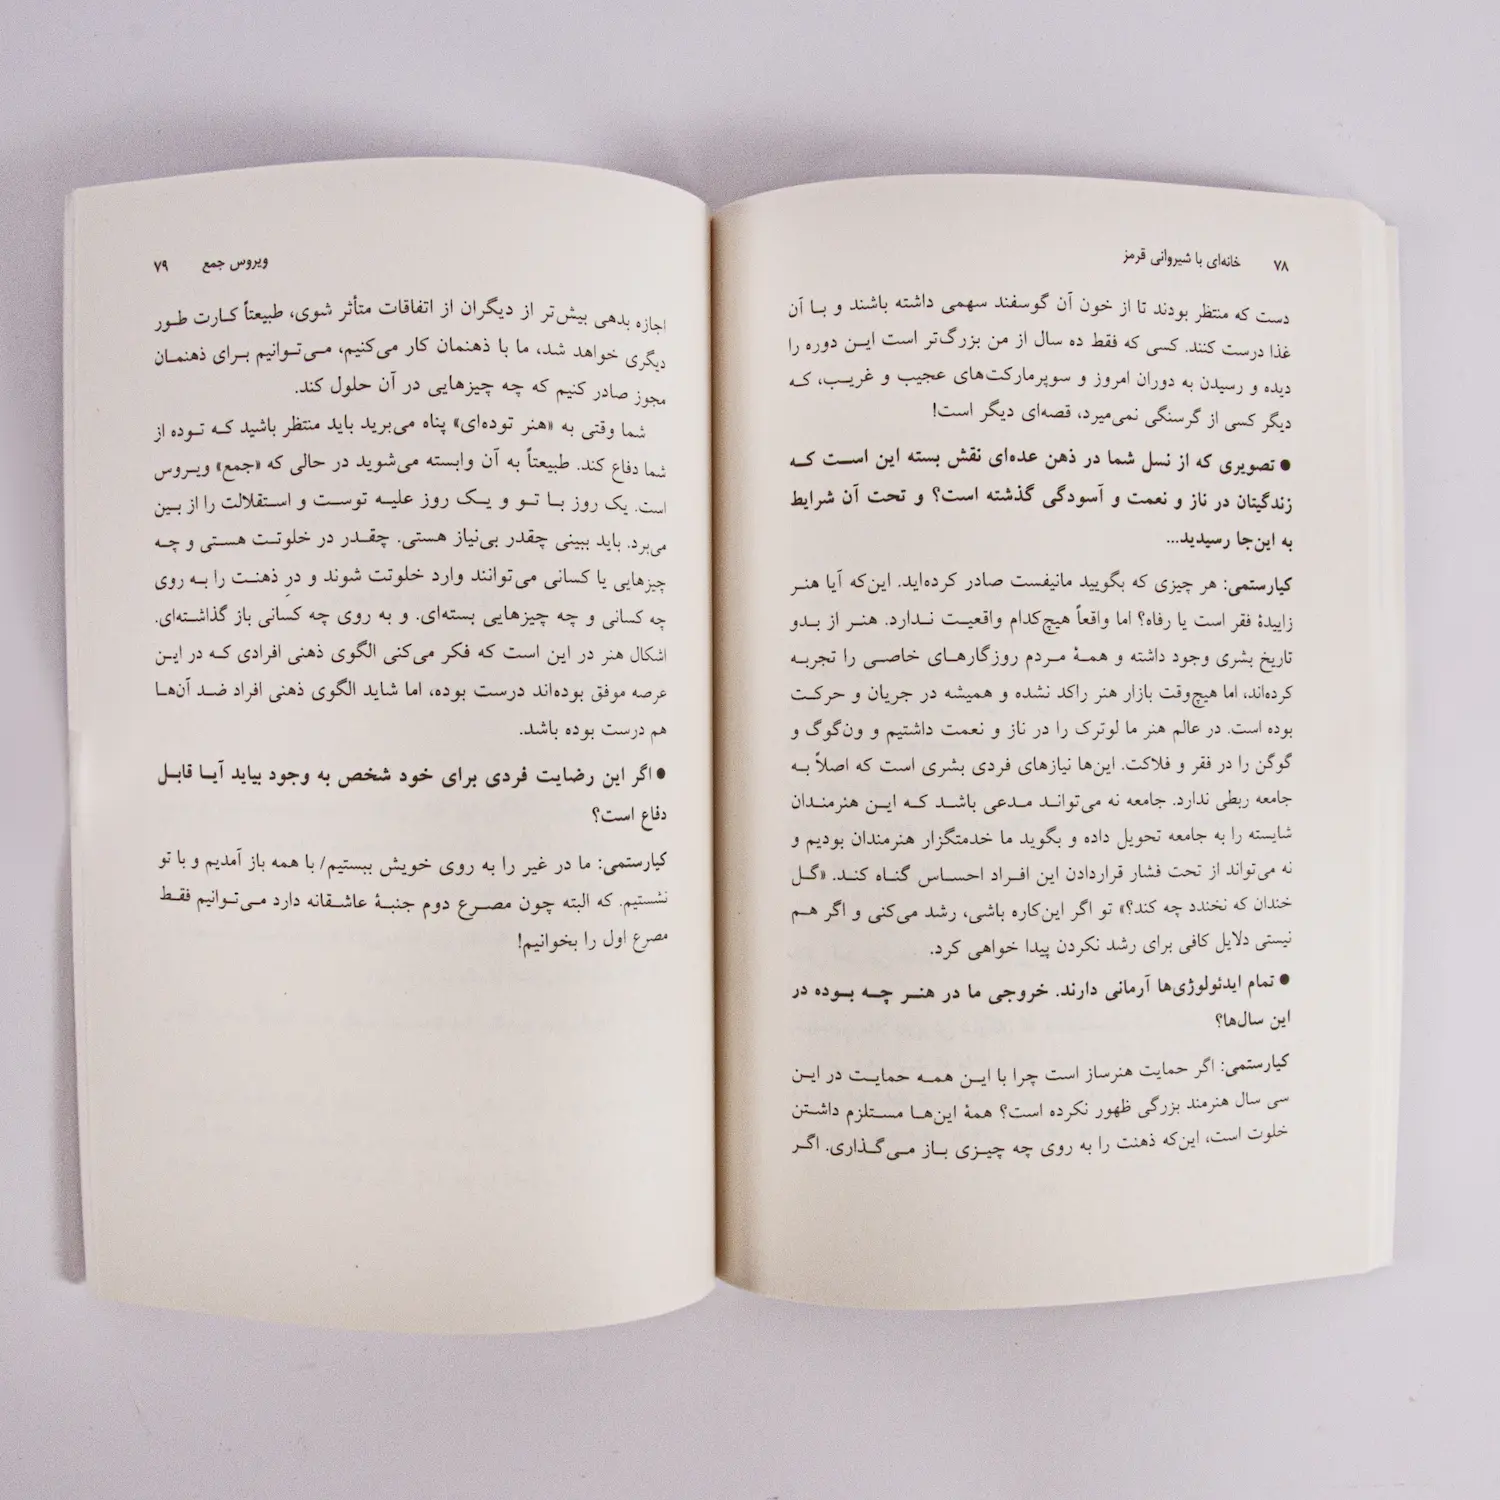 ۷۸ خانه‌ای با شیروانی قرمز
دست که منتظر بودند تا از خون آن گوسفند سهمی داشته باشند و بـا آن
غذا درست کنند. کسی که فقط ده سال از من بزرگ‌تر است ایـن دوره را
دیده و رسیدن به دوران امروز و سوپرمارکت‌های عجیب و غریـب، کـه
دیگر کسی از گرسنگی نمی‌میرد، قصه‌ای دیگر است!
● تصویری که از نسل شما در ذهن عده‌ای نقش بسته این اسـت کـه
زندگیتان در ناز و نعمت و آسودگی گذشته است؟ و تحت آن شرایط
به این‌جا رسیدید...
کیارستمی: هر چیزی که بگویید مانیفست صادر کرده‌اید. این‌که آیا هنـر
زاییدهٔ فقر است یا رفاه؟ اما واقعاً هیچ‌کدام واقعیـت نـدارد. هنـر از بـدو
تاریخ بشری وجود داشته و همـهٔ مـردم روزگارهـای خاصـی را تجربـه
کرده‌اند، اما هیچ‌وقت بازار هنر راکد نشده و همیشه در جریان و حرکت
بوده است. در عالم هنر ما لوترک را در ناز و نعمت داشتیم و ون‌گوگ و
گوگن را در فقر و فلاکت. این‌ها نیازهای فردی بشری است که اصلاً بـه
جامعه ربطی ندارد. جامعه نه می‌توانـد مـدعی باشـد کـه ایـن هنرمنـدان
شایسته را به جامعه تحویل داده و بگوید ما خدمتگزار هنرمندان بودیم و
نه می‌تواند از تحت فشار قراردادن این افـراد احسـاس گنـاه کنـد. «گـل
خندان که نخندد چه کند؟» تو اگر این‌کاره باشی، رشد می‌کنی و اگر هـم
نیستی دلایل کافی برای رشد نکردن پیدا خواهی کرد.
● تمام ایدئولوژی‌ها آرمانی دارند. خروجی ما در هنـر چـه بـوده در
این سال‌ها؟
کیارستمی: اگر حمایت هنرساز است چرا با ایـن همـه حمایـت در ایـن
سی سال هنرمند بزرگی ظهور نکرده است؟ همهٔ این‌هـا مسـتلزم داشـتن
خلوت است، این‌که ذهنت را به روی چه چیـزی بـاز مـی‌گـذاری. اگـر
ویروس جمع ۷۹
اجازه بدهی بیش‌تر از دیگران از اتفاقات متأثر شوی، طبیعتاً کـارت طـور
دیگری خواهد شد، ما با ذهنمان کار می‌کنیم، مـی‌تـوانیم بـرای ذهنمـان
مجوز صادر کنیم که چه چیزهایی در آن حلول کند.
شما وقتی به «هنر توده‌ای» پناه می‌برید باید منتظر باشید کـه تـوده از
شما دفاع کند. طبیعتاً به آن وابسته می‌شوید در حالی که «جمع» ویـروس
است. یک روز بـا تـو و یـک روز علیـه توسـت و اسـتقلالت را از بـین
می‌برد. باید ببینی چقدر بی‌نیاز هستی. چقـدر در خلوتـت هسـتی و چـه
چیزهایی یا کسانی می‌توانند وارد خلوتت شوند و درِ ذهنـت را بـه روی
چه کسانی و چه چیزهایی بسته‌ای. و به روی چه کسانی باز گذاشـته‌ای.
اشکال هنر در این است که فکر می‌کنی الگوی ذهنی افرادی کـه در ایـن
عرصه موفق بوده‌اند درست بوده، اما شاید الگوی ذهنی افراد ضـد آن‌هـا
هم درست بوده باشد.
● اگر این رضایت فردی برای خود شخص به وجود بیاید آیـا قابـل
دفاع است؟
کیارستمی: ما در غیر را به روی خویش ببستیم/ با همه باز آمدیم و با تو
نشستیم. که البته چون مصـرع دوم جنبـهٔ عاشـقانه دارد مـی‌تـوانیم فقـط
مصرع اول را بخوانیم!